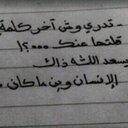 - تدري وش آخر كلمة
قلتها عنك ....؟!
يسعد الله ذاك
الإنسان وين ما كان ..